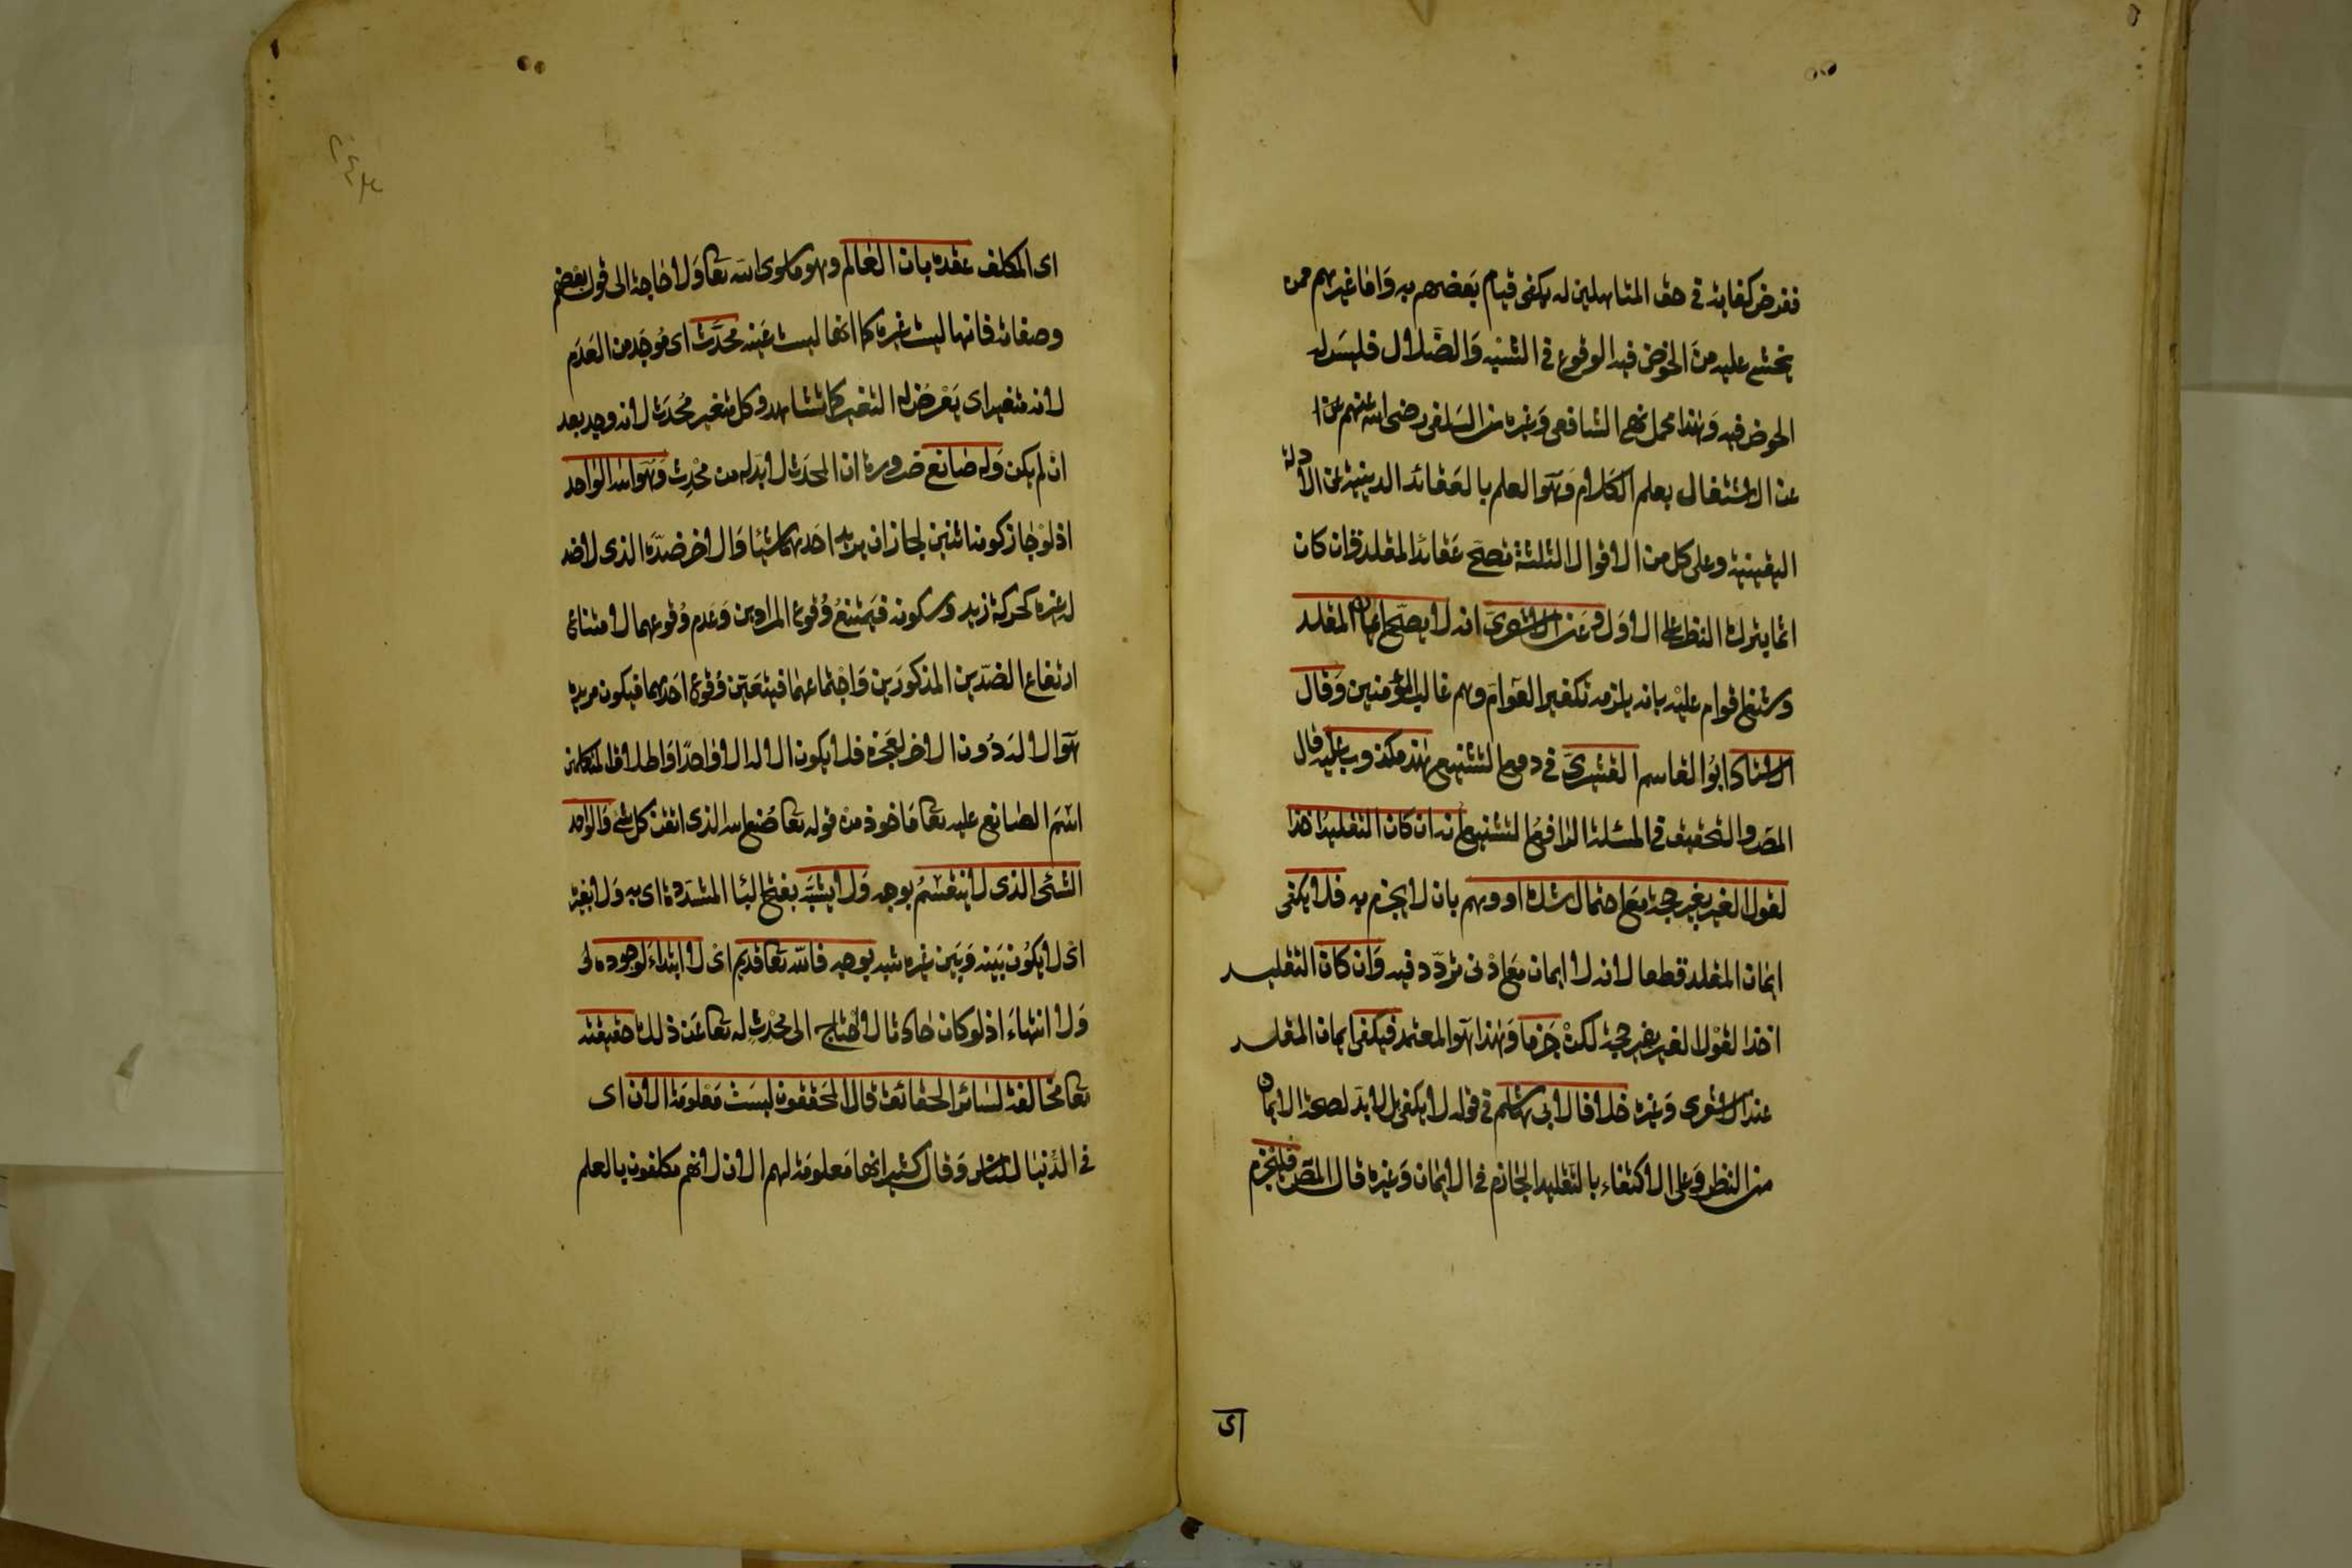 ففرض كفاية في حق المتاهلين له يكفى قيام بعضهم به وَاما غيرهم ممن
يخشى عليه من الخوض فيه الوقوع في الشبه وَالضّلال فليسَ له
الخوض فيه وَهٰذا محمل نهي الشافعي وَغيره من السَلف رضى الله عنهم عن ا
عن الاشتغال بعلم الكلام وَهوَ العلم بالعَقائد الدينية عن الادلة
اليقينية وعلى كل من الاقوال الثلثة تصحّ عَقائد المقلد وَان كان
اثما بترك النظر على الاوَل وَعَن الاشعرىّ انه لا يصحّ ايمان المقلد
وشنع اقوام عليْه بانه يلزمه تكفير العَوام وهم غالب المؤمنين وَقال
الاستاد ابُوا القاسم القشيرىّ في دفع التشنيع هٰذا مكذوب عليه قال
المصَ والتحقيق في المسئلة الدافع للتشنيع انه ان كان التقليد اخذا
لقول الغير بغير حجة مَع احتمال شك او وهم بان لا يجزم به فلا يكفى
ايمان المقلد قطعا لانه لا ايمان مَع ادْنى تردّد فيه وَان كان التقليد
اخذا لقوْل الغير بغير حجة لكنْ جَزما وَهٰذا هوَ المعتمد فيكفى ايمان المقلد
عند الاشعرى وَغيره خلافا لابى هاشم في قوله لا يكفى بل لابدّ لصحة الايمان
من النظر وَعلى الاكتفاء بالتقليد الجازم في الايمان وَغيره قال المصَ فليجزم
اى
اى المكلف عقده بان العٰالم وهو ما سوى الله تعا وَلا حٰاجة الى قول بعضهم
وصفاته فانها ليست غيره كما انها ليست عَينه محدَث اى مُوجَد من العَدَم
لانه متغير اى يَعْرض له التغير كما يشاهد وكل متغير مُحدَث لانه وجد بعد
ان لم يكن وَله صٰانع ضرورة ان المحدَث لابدّ له من مُحْدِث وَهُوَ الله الوٰاحد
اذ لوْ جٰاز كونه اثنين لجاز ان يريد احدهما شيئا وَالاخر ضدّه الذى لا ضد
له غيره كحركة زيد وسكونه فيَمتنعُ وُقوع المرادين وَعدم وُقوعهما لامتناع
ارتفاع الضدّين المذكورَين وَاجْتماعهما فيتعَين وقوع احَدهما فيكون مريده
هوَ الالٰه دُون الاخر لعَجزه فلا يكون الالٰه الا وٰاحدًا وَاطلاق المتكلمين
اسْمَ الصٰانع عليه تعا مَاخوذ منْ قوله تعا صُنع الله الذى اتقن كل شئ وَالوٰاحد
الشئ الذى لا ينقسمُ بوجه وَلا يشبَّه بفتح البٰا المشدّدة اى به وَلا بغيره
اىْ لا يكُون بَينه وَبَين غيره شبه بوجه فالله تعا قديم اىْ لا ابتداء لوجوده
وَلا انتهاءَ اذ لو كان حٰادثا لاحْتاج الى مُحْدِث له تعا عَن ذلك حقيقته
تعا مخٰالفة لسٰائر الحقائق قال المحَققون ليسَتْ مَعْلومَة الان اى
في الدُّنيٰا للناس وَقال كثير انها مَعلومَة لهم الان لانهم مكلفون بالعلم